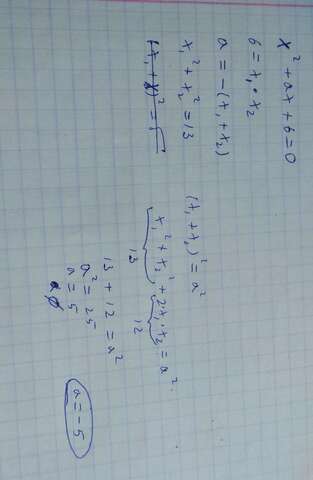 x² + ax + 6 = 0
6 = x₁ · x₂
a = -(x₁ + x₂)
x₁² + x₂² = 13
(x₁ + x₂)² = a²
x₁² + x₂² + 2·x₁·x₂ = a²
13 12
13 + 12 = a²
a² = 25
a = 5
a = -5